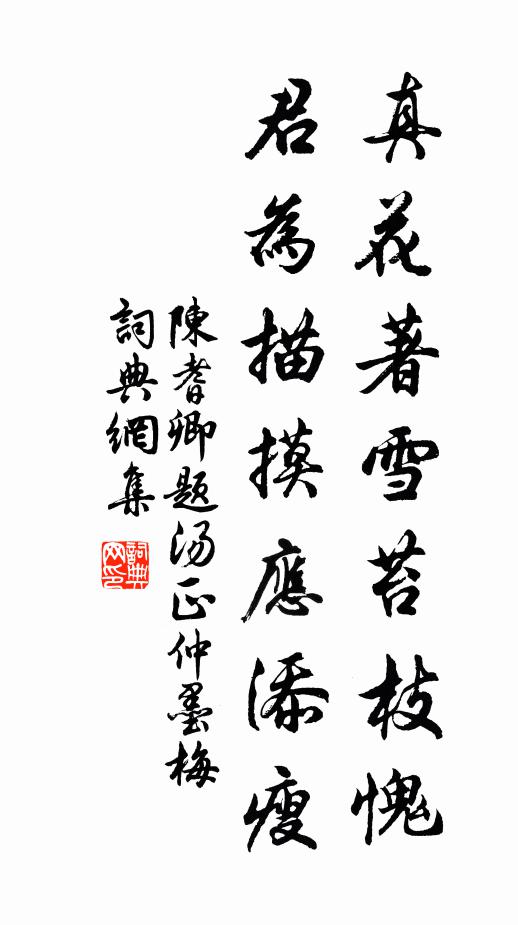 真花著雪苔枝愧
君為描摸應添瘦
陳耆卿題汤正仲墨梅
詞典網集
詞典网印